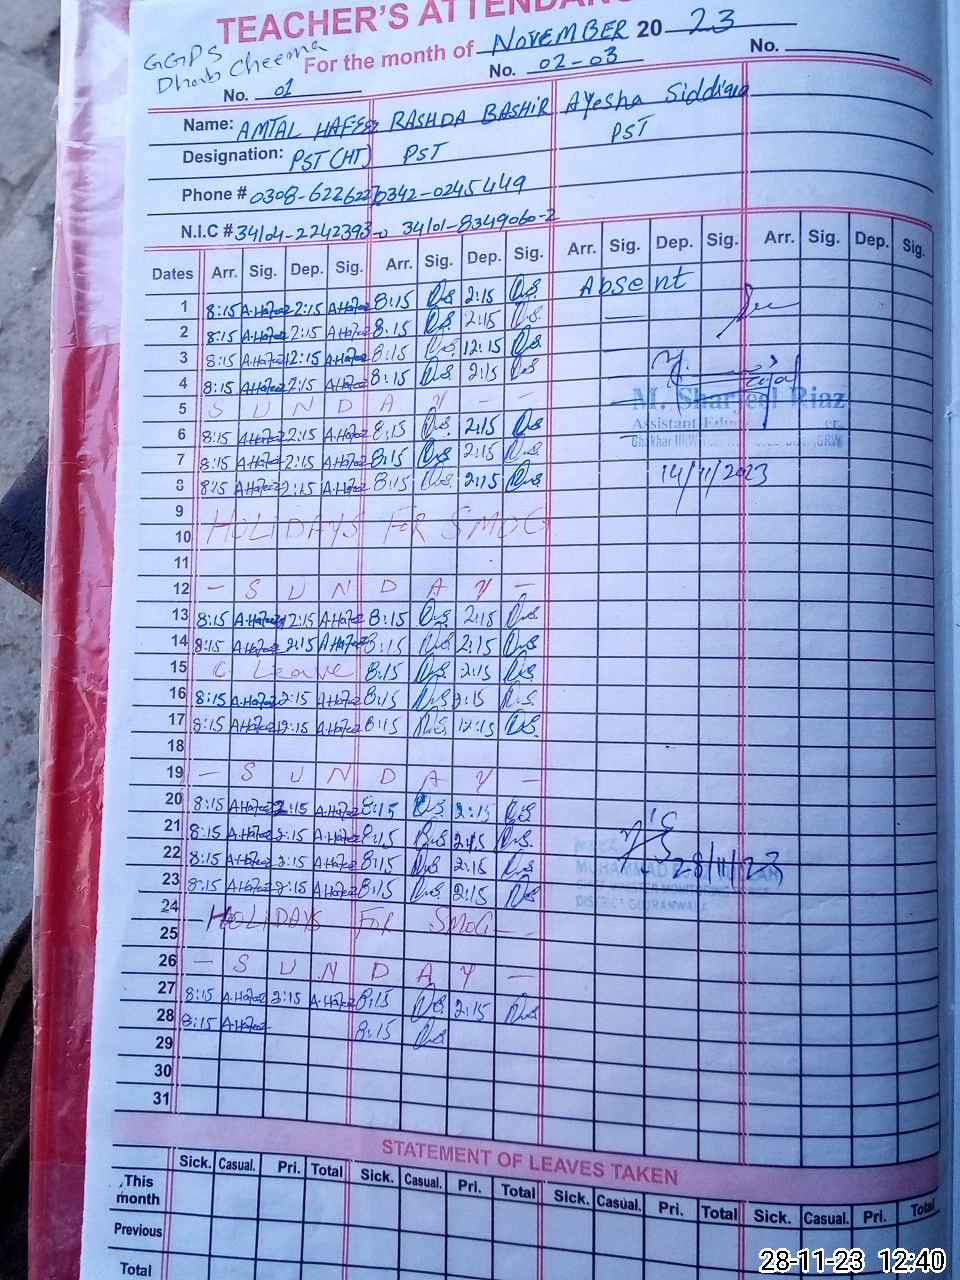 TEACHER'S ATTENDAN
GGPS
Dhab Cheema
For the month of NOVEMBER 20 23
No. 01 No. 02-03 No.
Name: AMTAL HAFEEZ RASHDA BASHIR Ayesha Siddiqa
Designation: PST(HT) PST PST
Phone # 0308-622622 0342-0245449
N.I.C # 34104-2242393-0 34101-8349060-2
Dates Arr. Sig. Dep. Sig. Arr. Sig. Dep. Sig. Arr. Sig. Dep. Sig. Arr. Sig. Dep. Sig.
1 8:15 A.Hafeez 2:15 A.Hafeez 8:15 2:15 Absent
2 8:15 A.Hafeez 2:15 A.Hafeez 8:15 2:15
3 8:15 A.Hafeez 12:15 A.Hafeez 8:15 12:15
4 8:15 A.Hafeez 2:15 A.Hafeez 8:15 2:15
M. Sharjeel Riaz
5 S U N D A Y - -
Assistant
6 8:15 A.Hafeez 2:15 A.Hafeez 8:15 2:15
Ghakhar GRW
7 8:15 A.Hafeez 2:15 A.Hafeez 8:15 2:15
8 8:15 A.Hafeez 2:15 A.Hafeez 8:15 2:15 14/11/2023
9
10 HOLIDAYS FOR SMOG
11
12 - S U N D A Y -
13 8:15 A.Hafeez 2:15 A.Hafeez 8:15 2:15
14 8:15 A.Hafeez 2:15 A.Hafeez 8:15 2:15
15 C Leave 8:15 2:15
16 8:15 A.Hafeez 2:15 A.Hafeez 8:15 2:15
17 8:15 A.Hafeez 12:15 A.Hafeez 8:15 12:15
18
19 - S U N D A Y -
20 8:15 A.Hafeez 2:15 A.Hafeez 8:15 2:15
21 8:15 A.Hafeez 2:15 A.Hafeez 8:15 2:15
22 8:15 A.Hafeez 2:15 A.Hafeez 8:15 2:15 28/11/23
MUHAMMAD
23 8:15 A.Hafeez 2:15 A.Hafeez 8:15 2:15
DISTRICT GUJRANWALA
24
25 - HOLIDAYS FOR SMOG -
26 - S U N D A Y -
27 8:15 A.Hafeez 2:15 A.Hafeez 8:15 2:15
28 8:15 A.Hafeez 8:15
29
30
31
STATEMENT OF LEAVES TAKEN
Sick. Casual. Pri. Total Sick. Casual. Pri. Total Sick. Casual. Pri. Total Sick. Casual. Pri. Total
This
month
Previous
Total
28-11-23 12:40